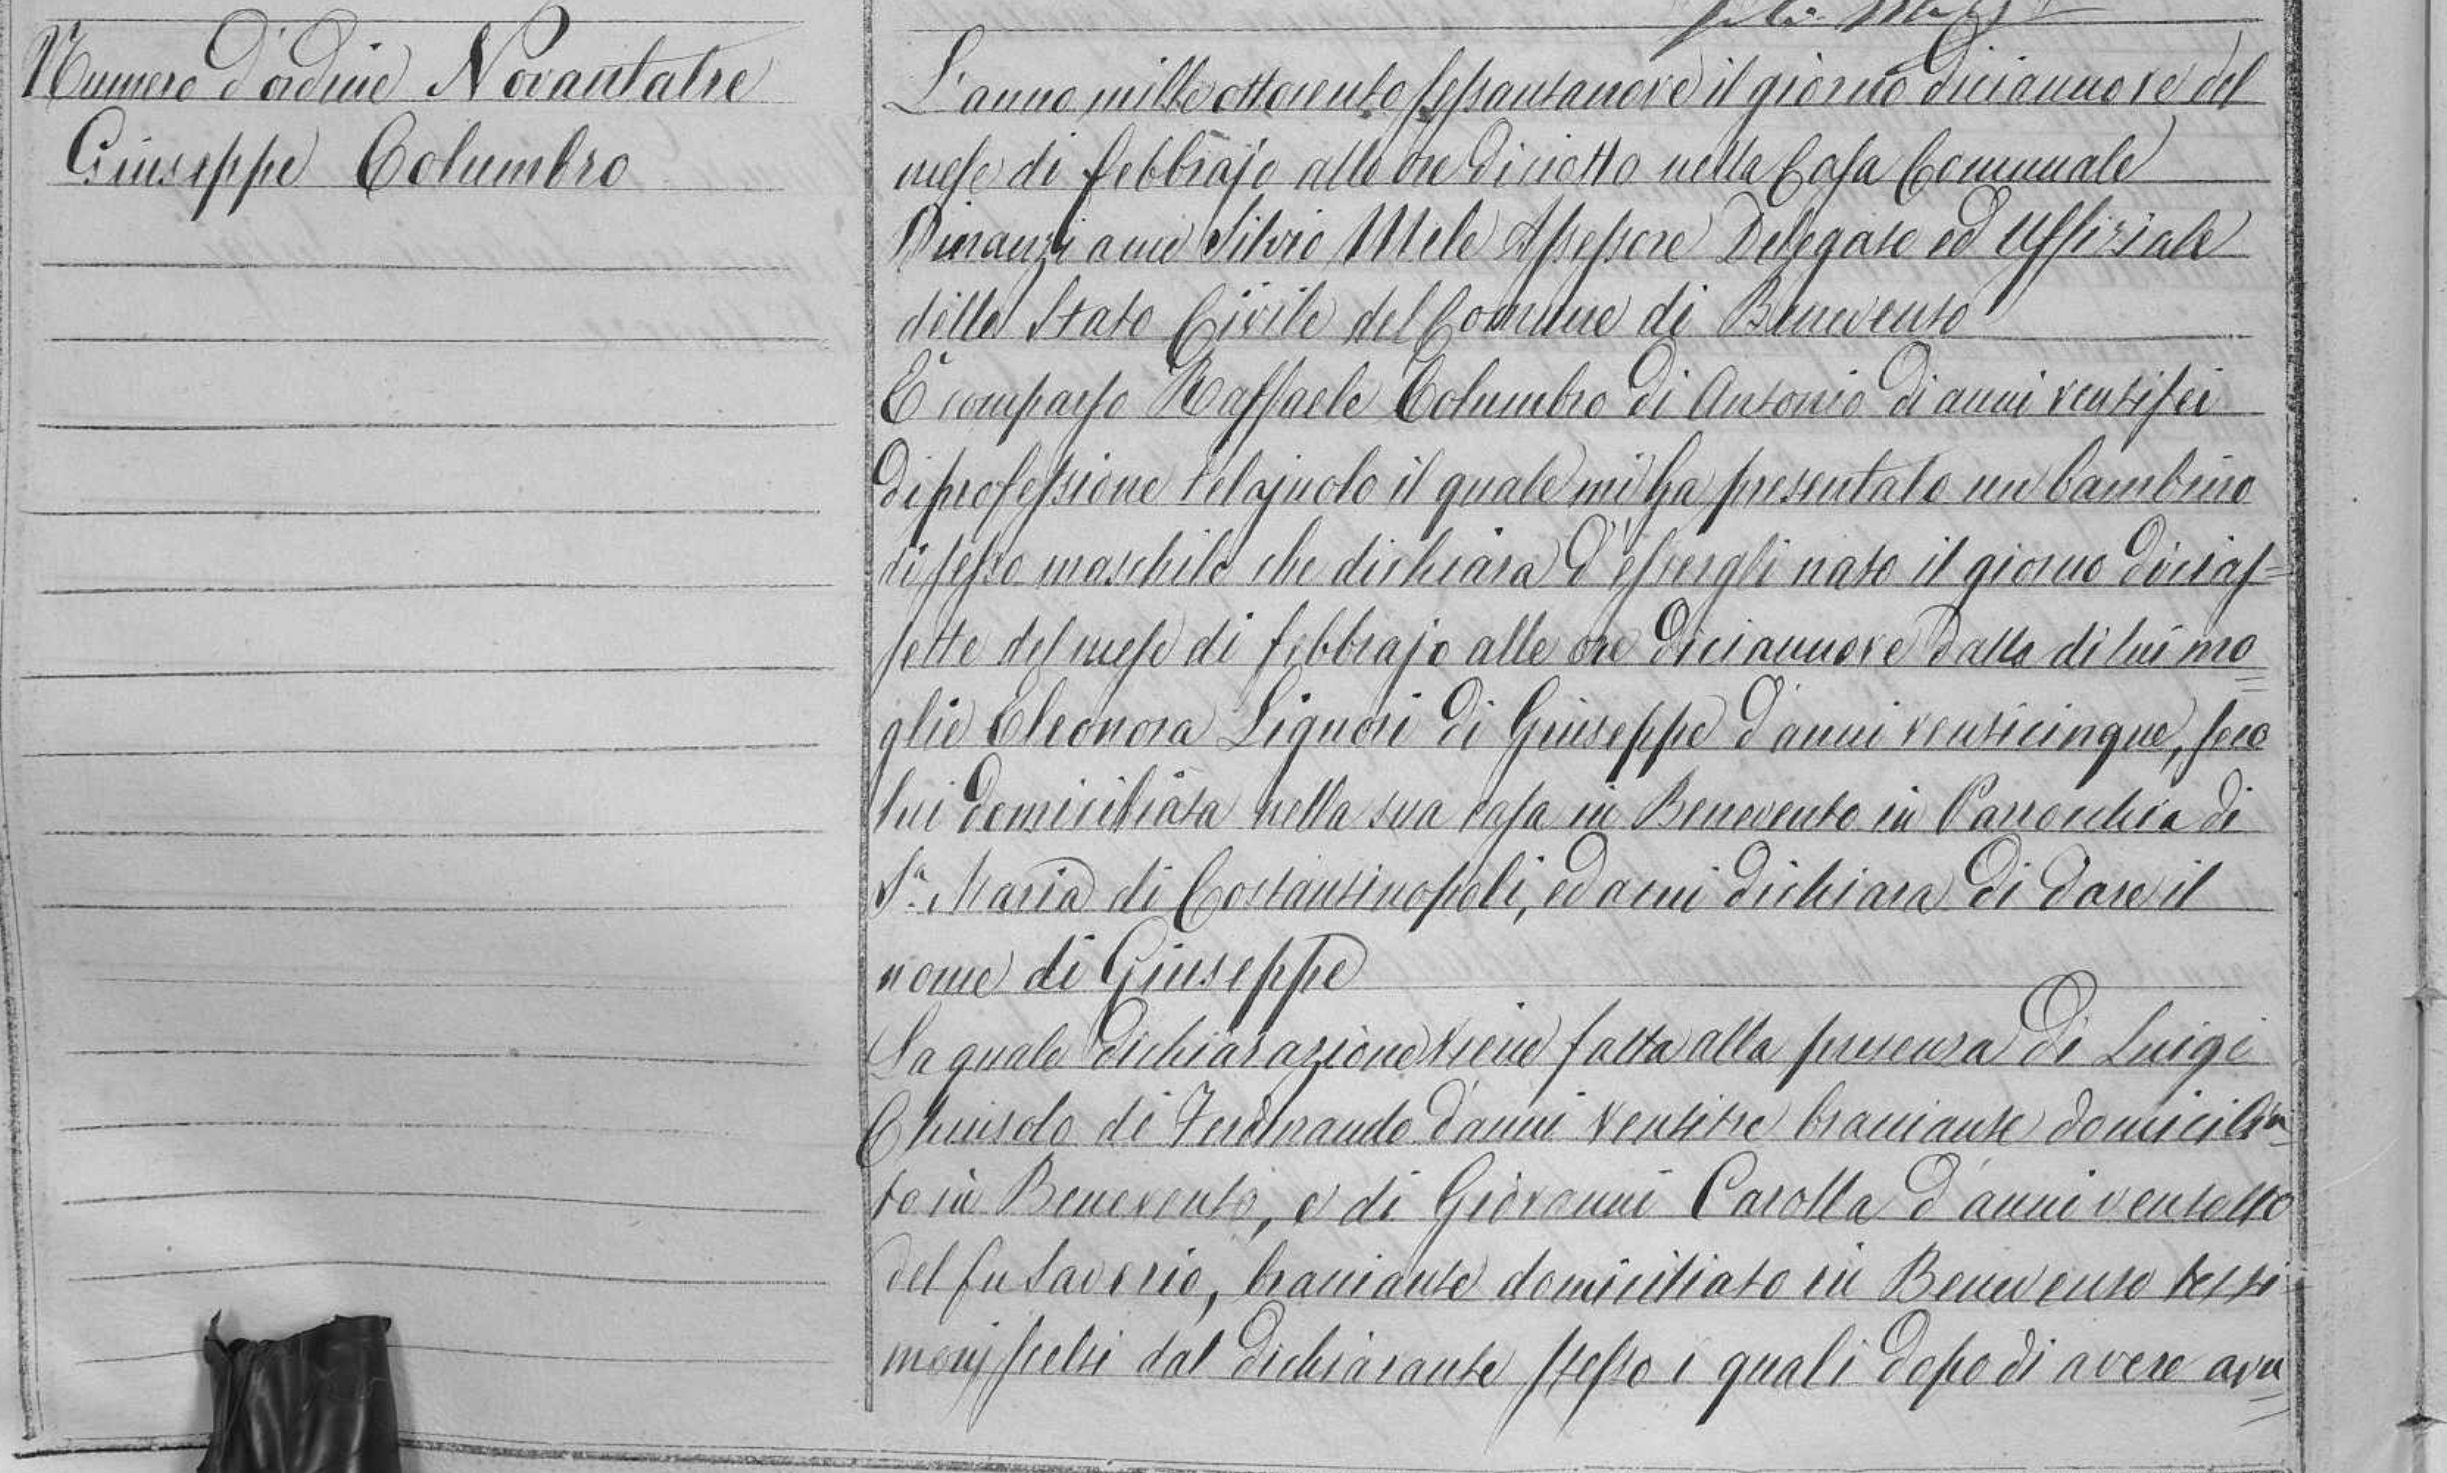 Numero d'ordine Novantatre
Giuseppe Columbro
L'anno mille ottocento sessantanove il giorno diciannove del
mese di febbrajo alle ore diciotto nella Casa Comunale
Dinanzi a me Silvio Mele Assessore Delegato ed Uffiziale
dello Stato Civile del Comune di Benevento
È comparso Raffaele Columbro di Antonio di anni ventisei
di professione telajuolo il quale mi ha presentato un bambino
di sesso maschile che dichiara d'essergli nato il giorno dicias=
sette del mese di febbrajo alle ore diciannove dalla di lui mo=
glie Eleonora Liguori di Giuseppe d'anni venticinque, seco
lui domiciliata nella sua casa in Benevento in Parrocchia di
Sª. Maria di Costantinopoli, ed a cui dichiara di dare il
nome di Giuseppe
La quale dichiarazione viene fatta alla presenza di Luigi
Chiusolo di Ferdinando d'anni ventitre bracciante domicilia=
to in Benevento, e di Giovanni Carolla d'anni ventotto
del fu Saverio, bracciante domiciliato in Benevento testi=
monj scelti dal dichiarante stesso i quali dopo di avere avu=